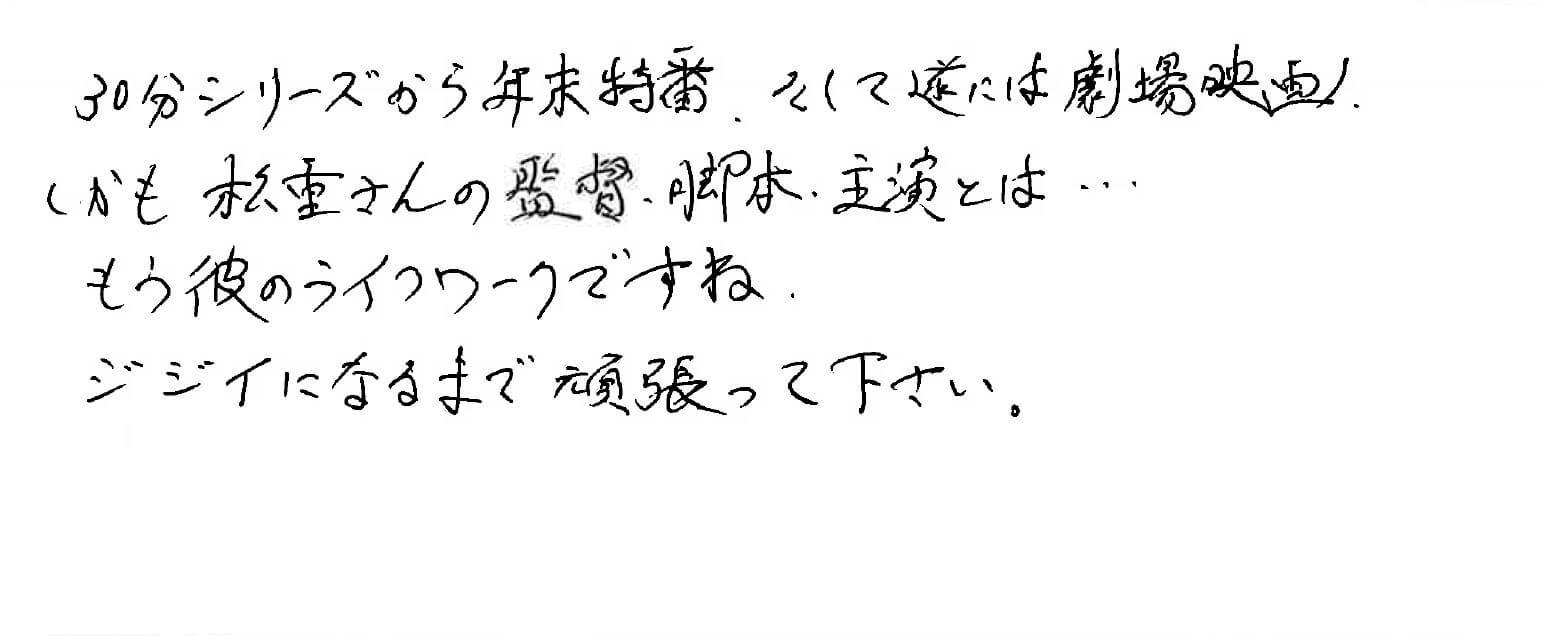 30分シリーズから年末特番、そして遂には劇場映画!
しかも松重さんの監督・脚本・主演とは…
もう彼のライフワークですね.
ジジイになるまで頑張って下さい。